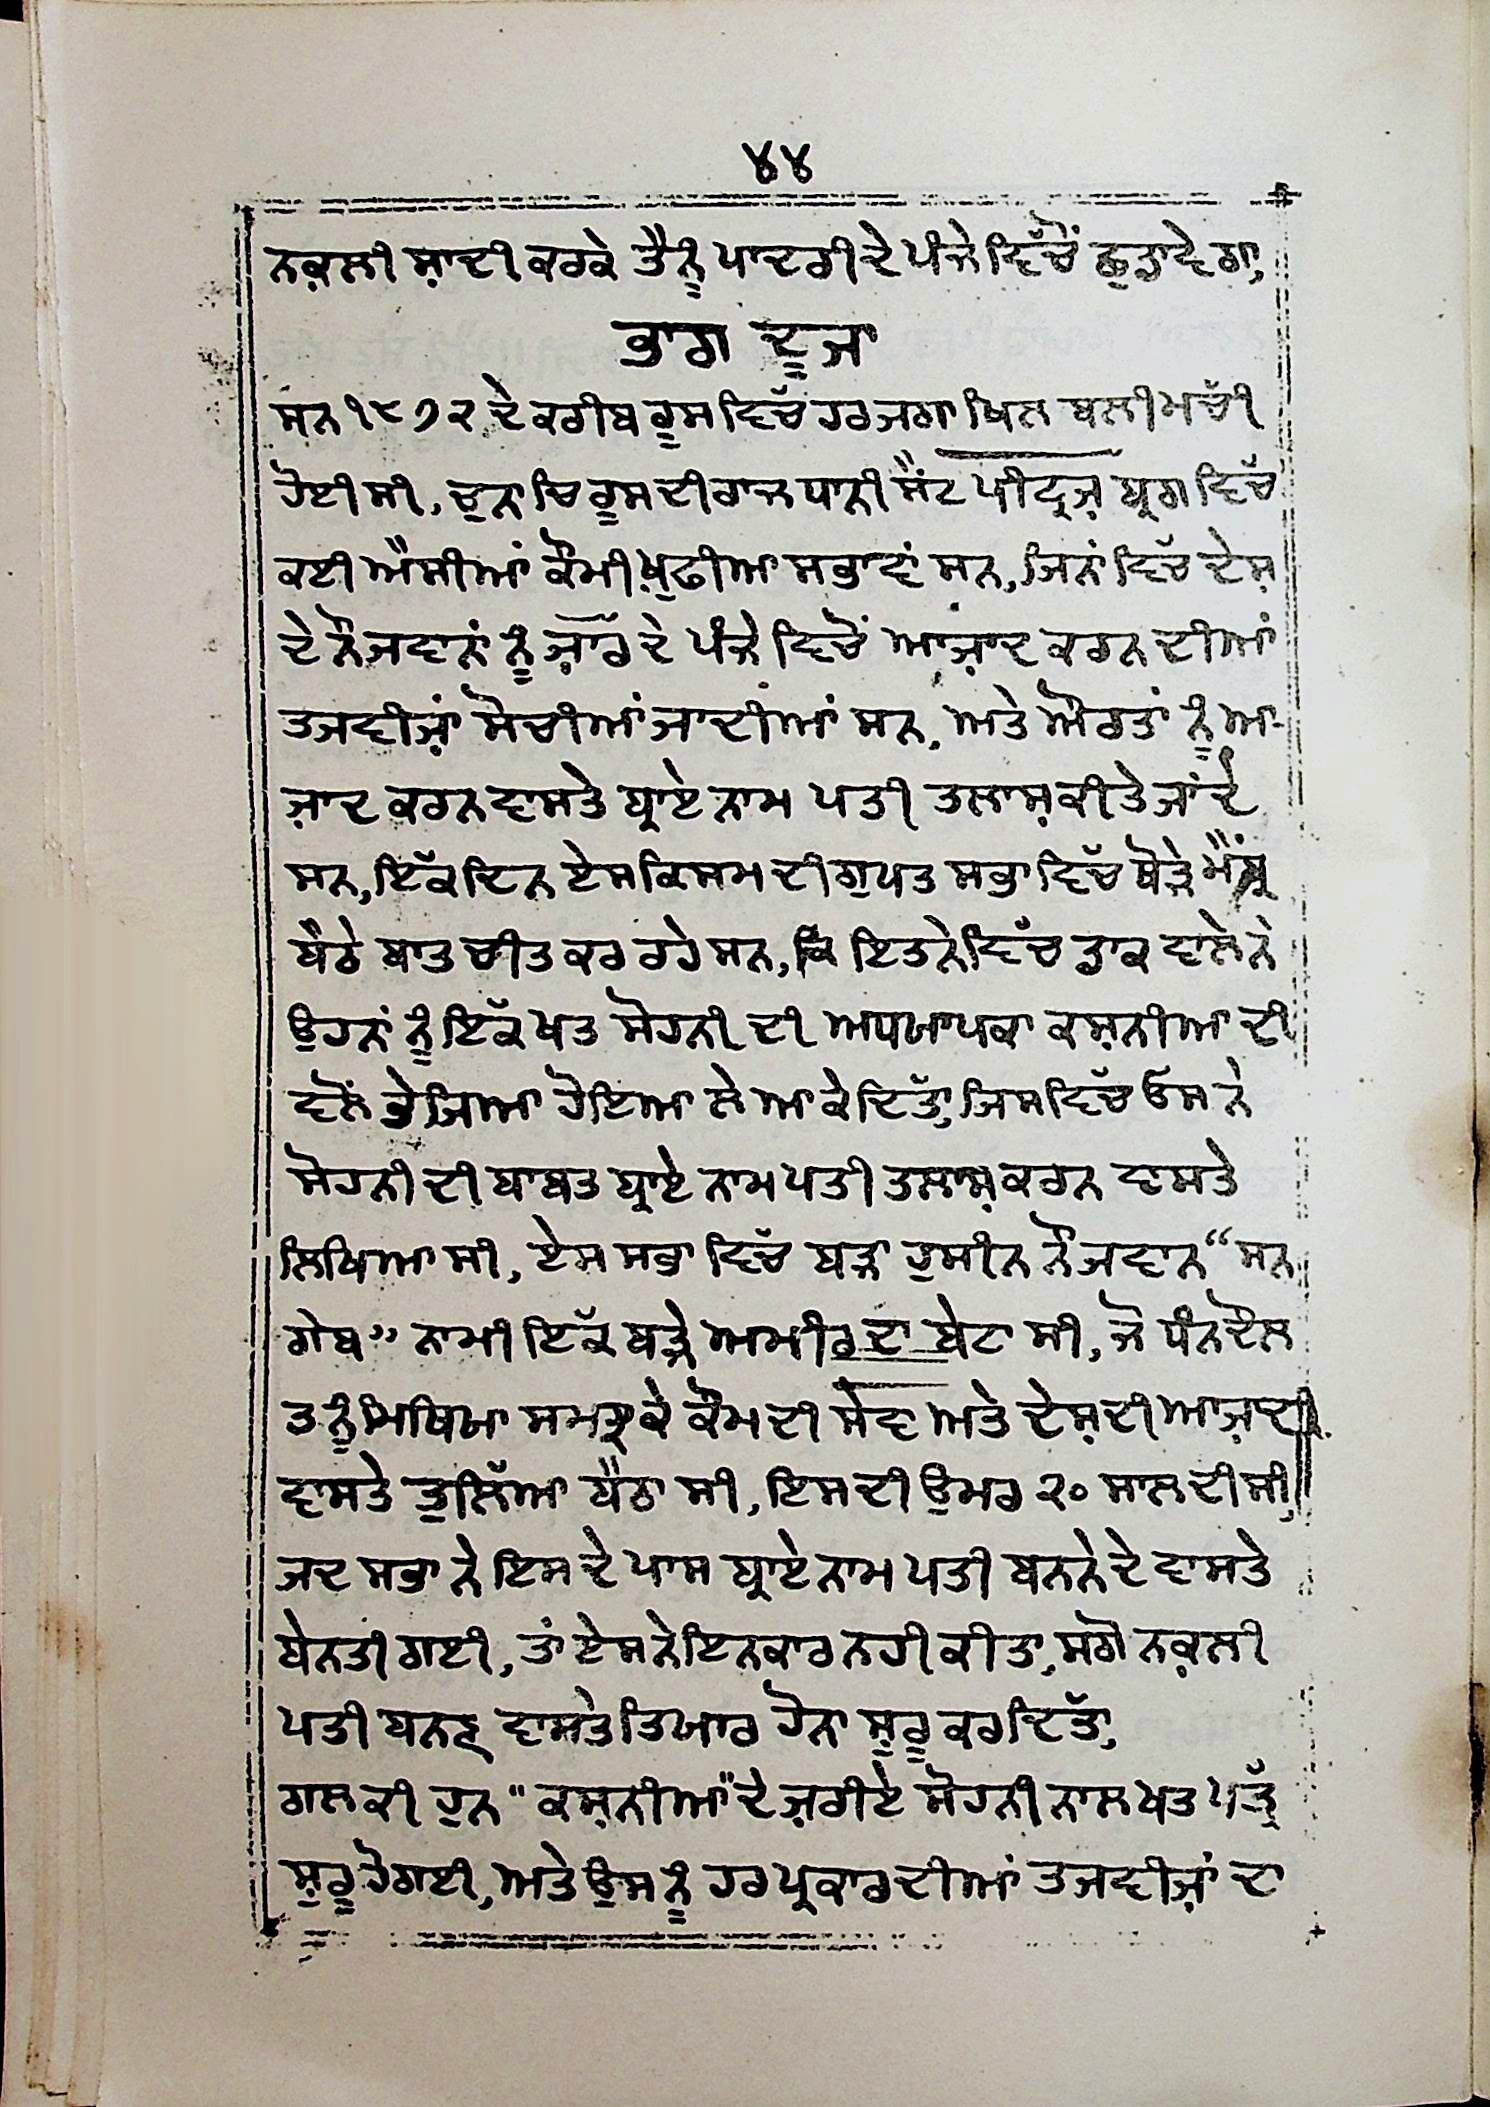 ੪੪
ਨਕ਼ਲੀ ਸ਼ਾਦੀ ਕਰਕੇ ਤੈਨੂੰ ਪਾਦਰੀ ਦੇ ਪੰਜੇ ਵਿੱਚੋਂ ਛੁੜਾਵੇਗਾ,
ਭਾਗ ਦੂਜਾ
ਸਨ ੧੮੭੨ ਦੇ ਕਰੀਬ ਰੂਸ ਵਿੱਚ ਹਰ ਜਗਾ ਖਿਲ ਬਲੀ ਮਚੱੀ
ਹੋਈ ਸੀ, ਚੁਨਾਚਿ ਰੂਸ ਦੀ ਰਾਜ ਧਾਨੀ ਸੈਂਟ ਪੀਟ੍ਰਜ਼ ਬ੍ਰਗ ਵਿੱਚ
ਕਈ ਐਸੀਆਂ ਕੌਮੀ ਖ਼ੁਫੀਆ ਸਭਾਵਾਂ ਸਨ, ਜਿਨਾਂ ਵਿੱਚ ਦੇਸ਼
ਦੇ ਨੌਜਵਾਨਾਂ ਨੂੰ ਜ਼ਾਰ ਦੇ ਪੰਜੇ ਵਿਚੋਂ ਆਜ਼ਾਦ ਕਰਨ ਦੀਆਂ
ਤਜਵੀਜ਼ਾਂ ਸੋਚੀਆਂ ਜਾਦੀਆਂ ਸਨ, ਅਤੇ ਔਰਤਾਂ ਨੂੰ ਆ-
ਜ਼ਾਦ ਕਰਨ ਵਾਸਤੇ ਬ੍ਰਾਏ ਨਾਮ ਪਤੀ ਤਲਾਸ਼ ਕੀਤੇ ਜਾਂਦੇ
ਸਨ, ਇੱਕ ਦਿਨ ਏਸ ਕਿਸਮ ਦੀ ਗੁਪਤ ਸਭਾ ਵਿੱਚ ਥੋੜੇ ਮੈਂਬ੍ਰ
ਬੈਠੇ ਬਾਤ ਚੀਤ ਕਰ ਰਹੇ ਸਨ, ਕਿ ਇਤਨੇ ਵਿੱਚ ਡਾਕ ਵਾਲੇ ਨੇ
ਉਹਨਾਂ ਨੂੰ ਇੱਕ ਖਤ ਸੋਹਨੀ ਦੀ ਅਧਯਾਪਕਾ ਕਸ਼ਨੀਆ ਦੀ
ਵਲੋਂ ਭੇਜਿਆ ਹੋਇਆ ਲੇ ਆਕੇ ਦਿੱਤਾ, ਜਿਸ ਵਿੱਚ ਓਸ ਨੇ
ਸੋਹਨੀ ਦੀ ਬਾਬਤ ਬ੍ਰਾਏ ਨਾਮ ਪਤੀ ਤਲਾਸ਼ ਕਰਨ ਵਾਸਤੇ
ਲਿਖਿਆ ਸੀ, ਏਸ ਸਭਾ ਵਿੱਚ ਬੜਾ ਹੁਸੀਨ ਨੌਜਵਾਨ “ਸਨ
ਗੇਬ” ਨਾਮੀ ਇੱਕ ਬੜੇ ਅਮੀਰ ਦਾ ਬੇਟਾ ਸੀ, ਜੋ ਧੰਨ ਦੌਲ
ਤ ਨੂੰ ਮਿਥਿਯਾ ਸਮਝਕੇ ਕੌਮ ਦੀ ਸੇਵਾ ਅਤੇ ਦੇਸ਼ ਦੀ ਆਜ਼ਾਦੀ
ਵਾਸਤੇ ਤੁਲਿੱਆ ਬੈਠਾ ਸੀ, ਇਸ ਦੀ ਉਮਰ ੨੦ ਸਾਲ ਦੀ ਸੀ,
ਜਦ ਸਭਾ ਨੇ ਇਸ ਦੇ ਪਾਸ ਬ੍ਰਾਏ ਨਾਮ ਪਤੀ ਬਨਨੇ ਦੇ ਵਾਸਤੇ
ਬੇਨਤੀ ਗਈ, ਤਾਂ ਏਸ ਨੇ ਇਨਕਾਰ ਨਹੀ ਕੀਤਾ, ਸਗੋ ਨਕ਼ਲੀ
ਪਤੀ ਬਨਣ ਵਾਸਤੇ ਤਿਯਾਰ ਹੋਨਾ ਸ਼ੁਰੂ ਕਰ ਦਿੱਤਾ,
ਗਲ ਕੀ ਹੁਨ "ਕਸ਼ਨੀਆ" ਦੇ ਜ਼ਰੀਏ ਸੋਹਨੀ ਨਾਲ ਖਤ ਪੱਤ੍ਰ
ਸ਼ੁਰੂ ਹੋਗਈ, ਅਤੇ ਉਸ ਨੂੰ ਹਰ ਪ੍ਰਕਾਰ ਦੀਆਂ ਤਜਵੀਜ਼ਾਂ ਦਾ